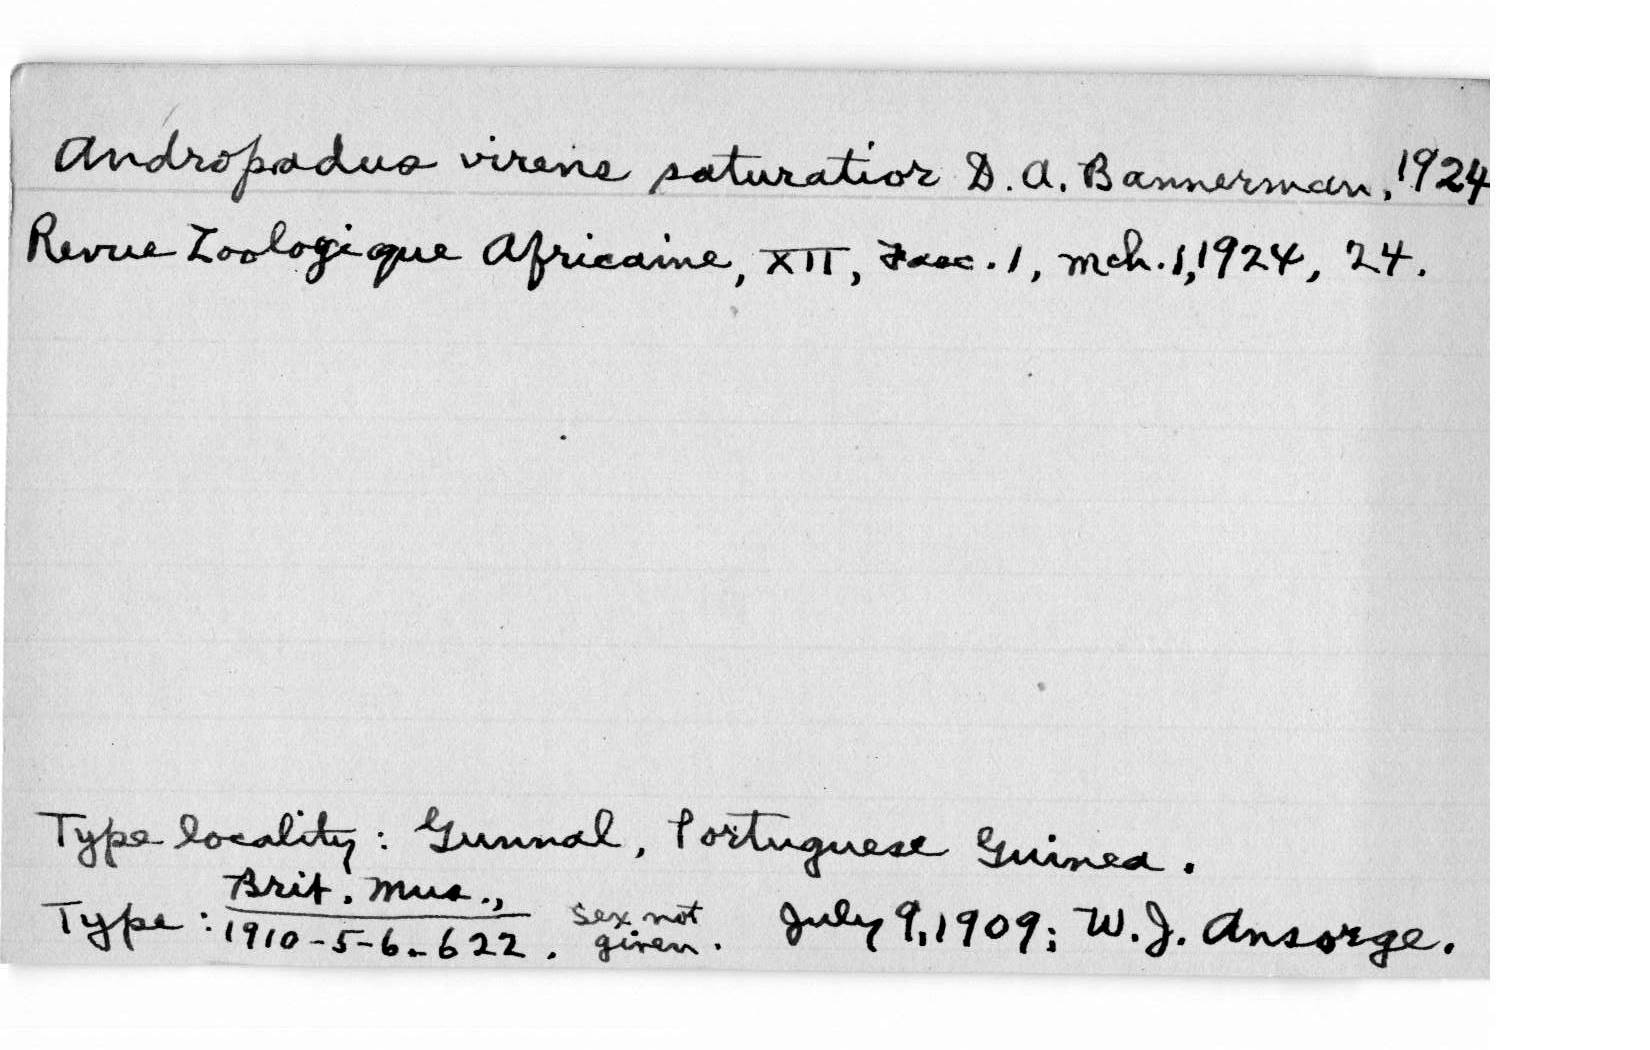 Andropadus virens saturatior D. A. Bannerman, 1924
Revue Zoologique Africaine, XII, Fasc. 1, Mch. 1, 1924, 24.
Type locality: Gunnal, Portuguese Guinea.
Type: Brit. Mus., 1910-5-6-622. Sex not given. July 9, 1909; W. J. Ansorge.